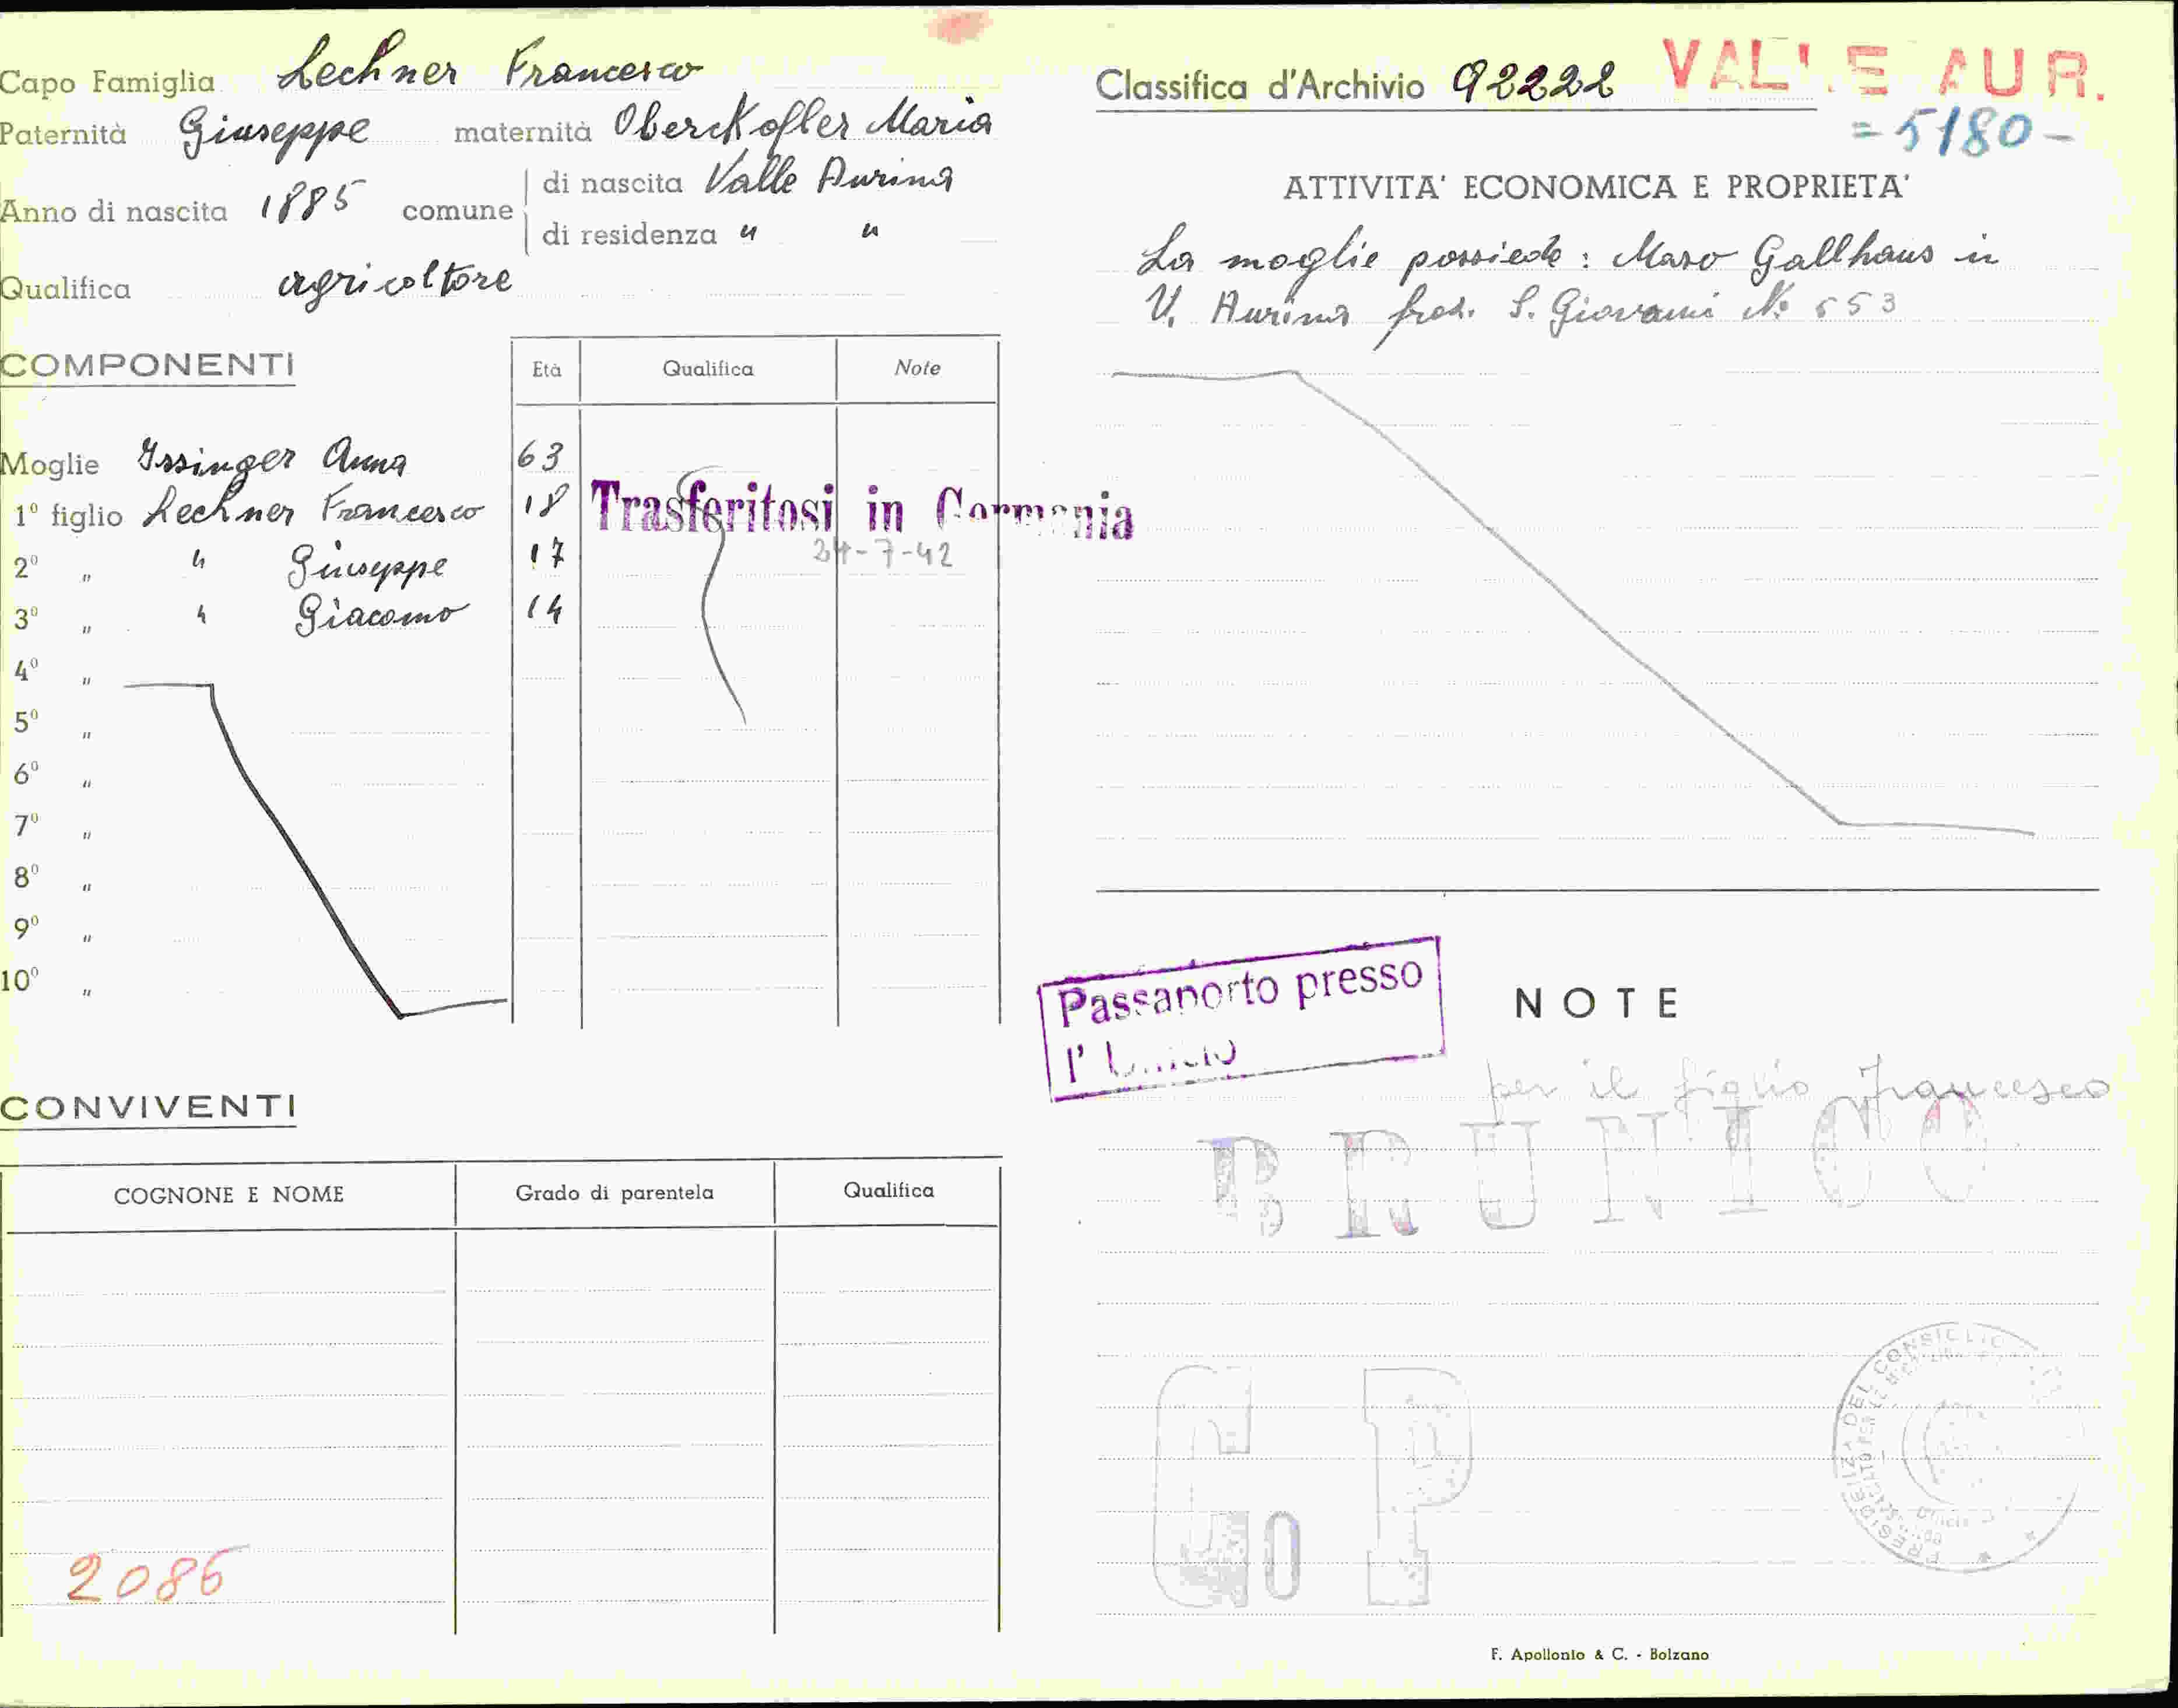 Capo Famiglia Lechner Francesco
Paternità Giuseppe maternità Oberckofler Maria
Anno di nascita 1885 comune di nascita Valle Aurina
di residenza " "
Qualifica agricoltore
COMPONENTI
Età Qualifica Note
Moglie Issinger Anna 63
1° figlio Lechner Francesco 18 Trasferitosi in Germania
24-7-42
2° " " Giuseppe 17
3° " " Giacomo 14
4° "
5° "
6° "
7° "
8° "
9° "
10° "
CONVIVENTI
COGNONE E NOME Grado di parentela Qualifica
2086
Classifica d'Archivio 92222 VALLE AUR.
=5180-
ATTIVITA' ECONOMICA E PROPRIETA'
La moglie possiede: Maso Gallhaus in
V. Aurina fraz. S. Giovanni No 553
Passaporto presso
l'Ufficio
NOTE
per il figlio Francesco
BRUNICO
Go P
PRESIDENZA DEL CONSIGLIO
F. Apollonio & C. - Bolzano